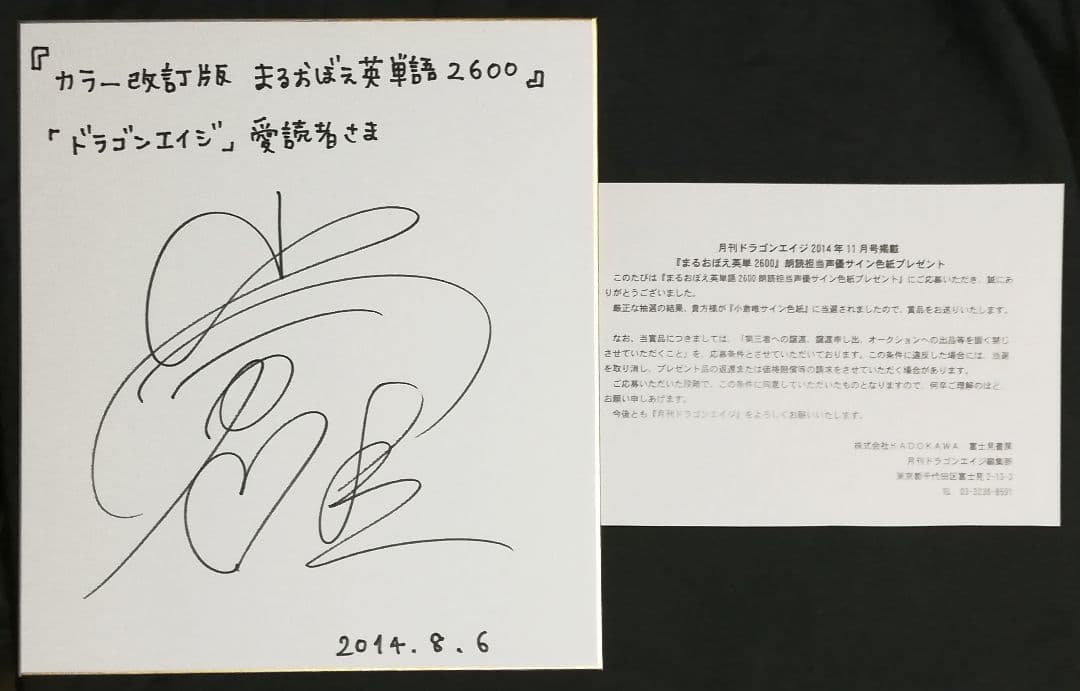 『カラー改訂版 まるおぼえ英単語2600』
「ドラゴンエイジ」愛読者さま
2014.8.6
月刊ドラゴンエイジ2014年11月号掲載
『まるおぼえ英単2600』朗読担当声優サイン色紙プレゼント
このたびは『まるおぼえ英単語2600朗読担当声優サイン色紙プレゼント』にご応募いただき、誠にあ
りがとうございました。
厳正な抽選の結果、貴方様が『小倉唯サイン色紙』に当選されましたので、賞品をお送りいたします。
なお、当賞品につきましては、「第三者への譲渡、譲渡申し出、オークションへの出品等を固く禁じ
させていただくこと」を、応募条件とさせていただいております。この条件に違反した場合には、当選
を取り消し、プレゼント品の返還または価格賠償等の請求をさせていただく場合があります。
ご応募いただいた段階で、この条件に同意していただいたものとなりますので、何卒ご理解のほど、
お願い申しあげます。
今後とも『月刊ドラゴンエイジ』をよろしくお願いいたします。
株式会社KADOKAWA 富士見書房
月刊ドラゴンエイジ編集部
東京都千代田区富士見2-13-3
TEL 03-3238-8591